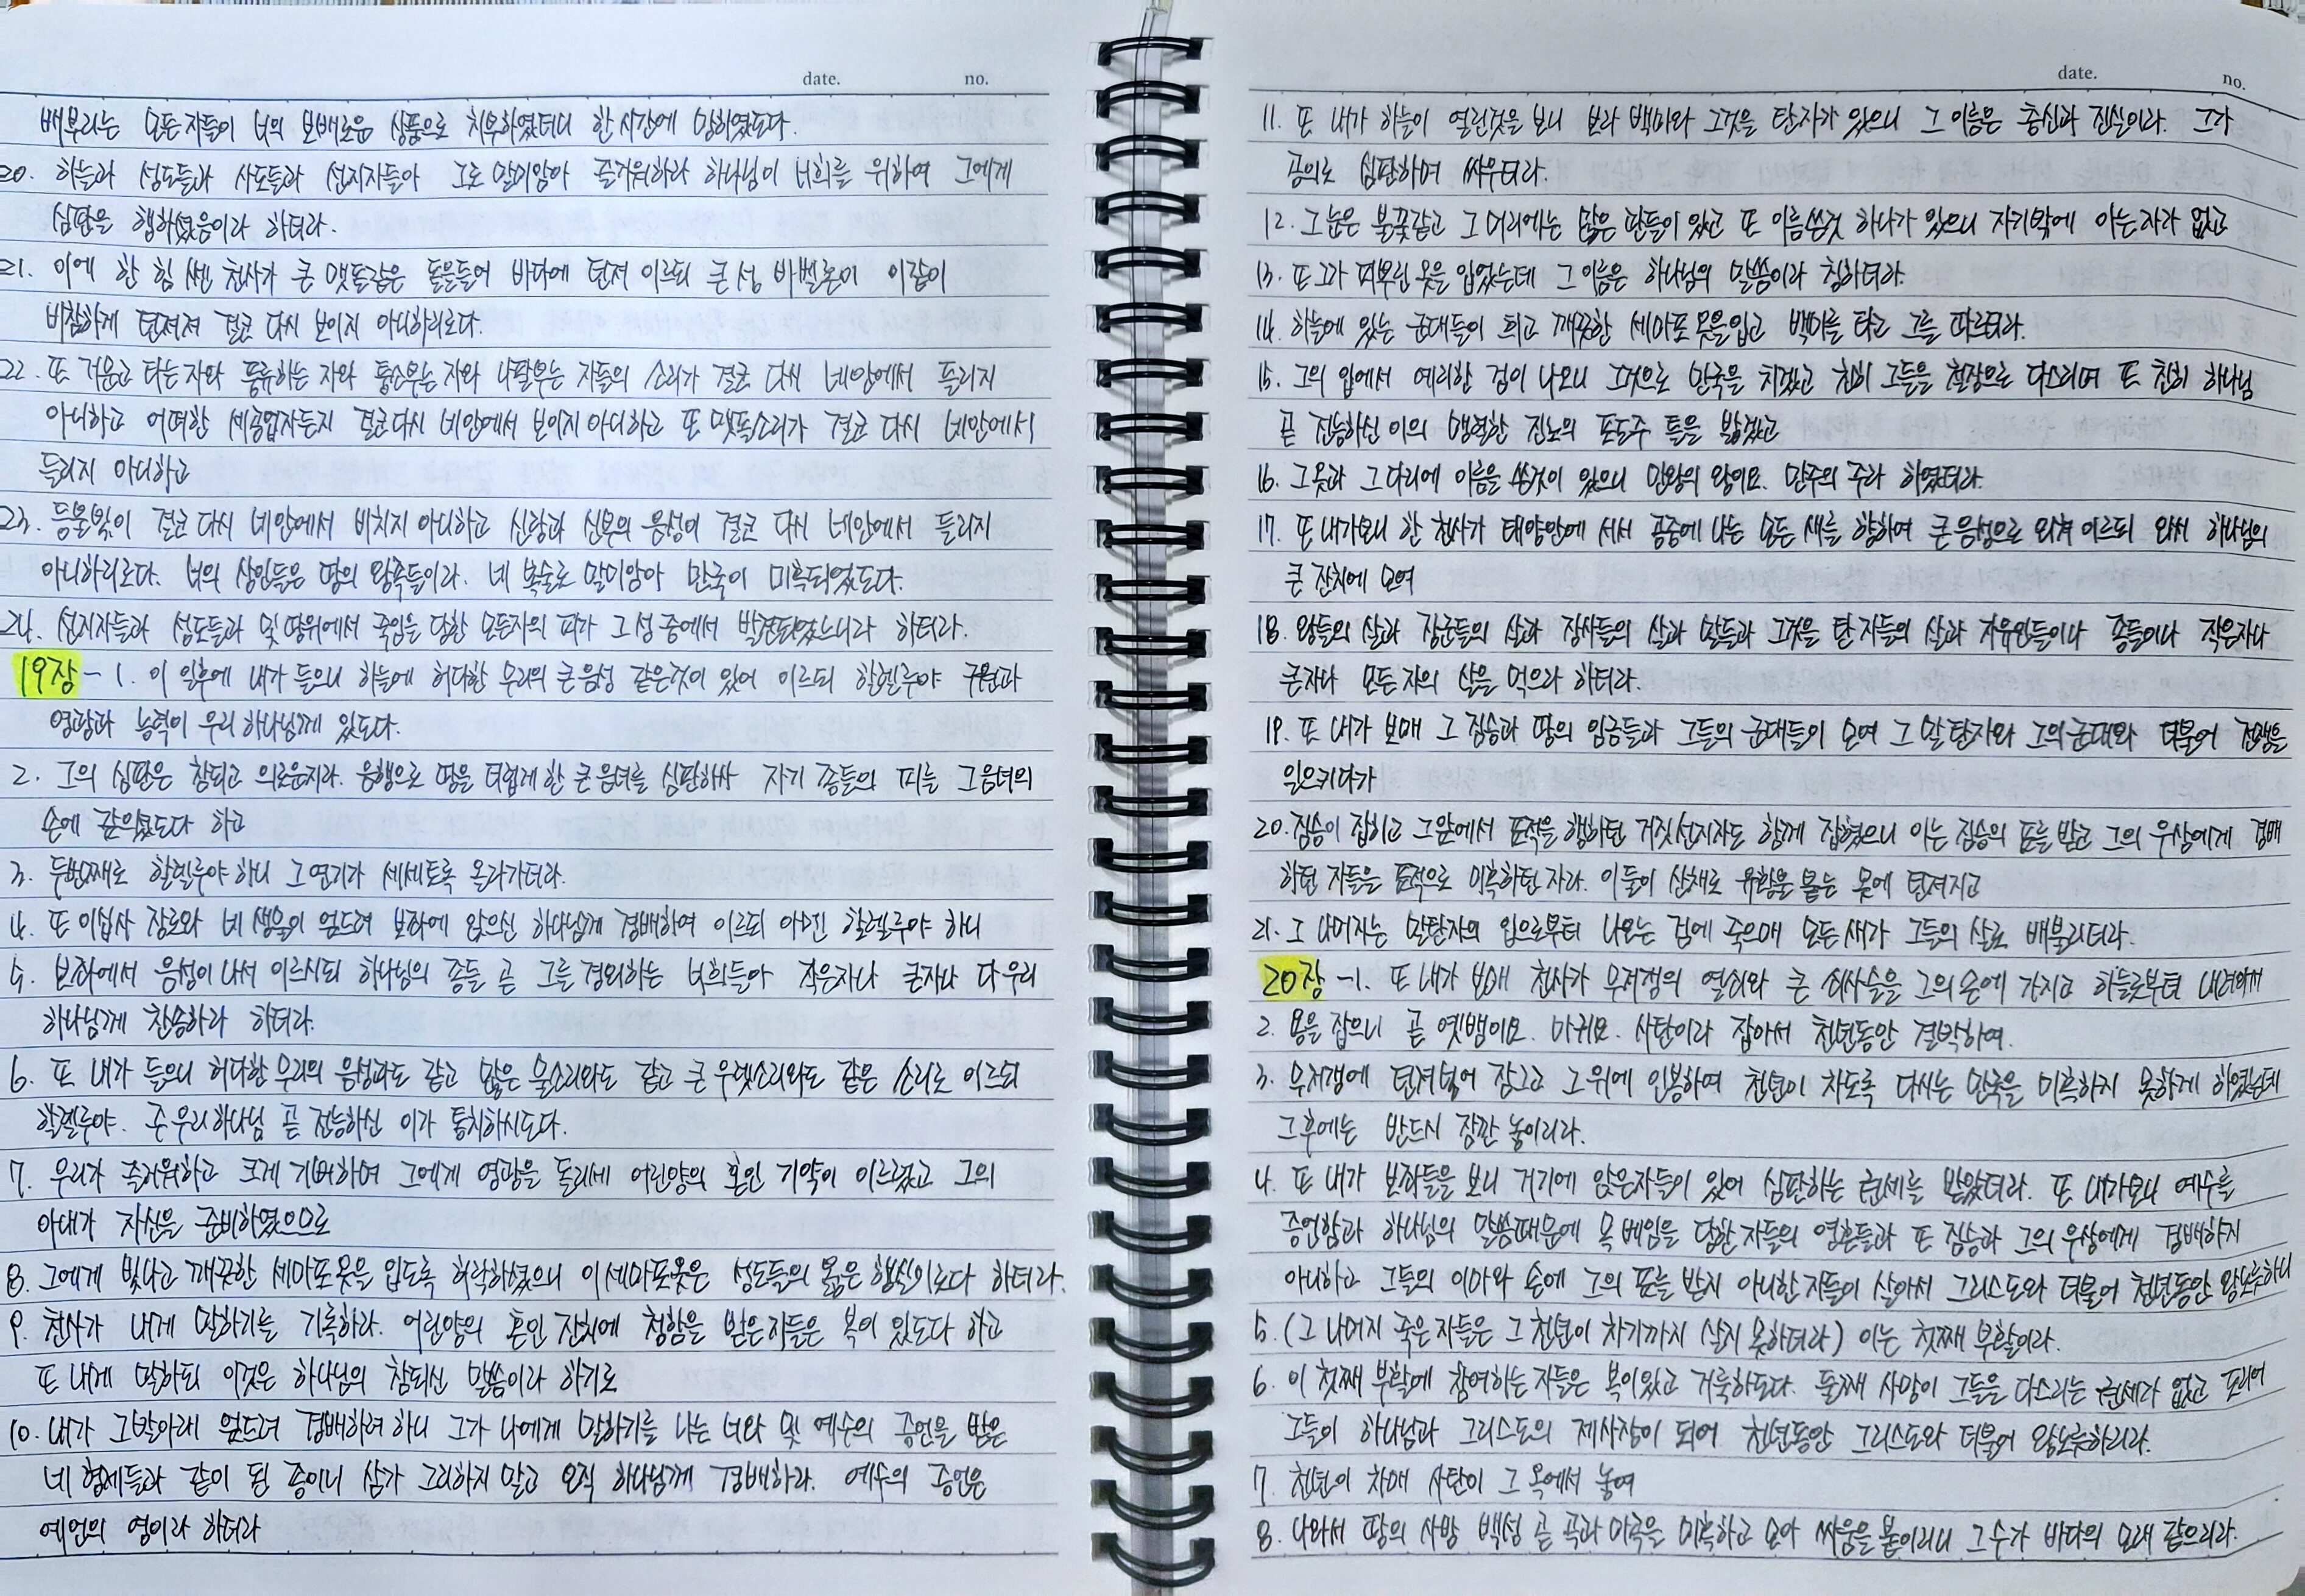 date. no.
배부리는 모든 자들이 너의 보배로운 상품으로 치부하였더니 한 시간에 망하였도다.
20. 하늘과 성도들과 사도들과 선지자들아 그로 말미암아 즐거워하라 하나님이 너희를 위하여 그에게
심판을 행하셨음이라 하더라.
21. 이에 한 힘 센 천사가 큰 맷돌같은 돌을들어 바다에 던져 이르되 큰 성 바벨론이 이같이
비참하게 던져져 결코 다시 보이지 아니하리로다.
22. 또 거문고 타는 자와 풍류하는 자와 퉁소부는 자와 나팔부는 자들의 소리가 결코 다시 네안에서 들리지
아니하고 어떠한 세공업자든지 결코다시 네안에서 보이지 아니하고 또 맷돌소리가 결코 다시 네안에서
들리지 아니하고
23. 등불빛이 결코 다시 네안에서 비치지 아니하고 신랑과 신부의 음성이 결코 다시 네안에서 들리지
아니하리로다. 너의 상인들은 땅의 왕족들이라. 네 복술로 말미암아 만국이 미혹되었도다.
24. 선지자들과 성도들과 및 땅위에서 죽임을 당한 모든자의 피가 그성 중에서 발견되었느니라 하더라.
19장 - 1. 이 일후에 내가 들으니 하늘에 허다한 무리의 큰음성 같은것이 있어 이르되 할렐루야 구원과
영광과 능력이 우리 하나님께 있도다.
2. 그의 심판은 참되고 의로운지라. 음행으로 땅을 더럽게 한 큰 음녀를 심판하사 자기 종들의 피를 그음녀의
손에 갚으셨도다 하고
3. 두번째로 할렐루야 하니 그연기가 세세토록 올라가더라.
4. 또 이십사 장로와 네 생물이 엎드려 보좌에 앉으신 하나님께 경배하여 이르되 아멘 할렐루야 하니
5. 보좌에서 음성이 나서 이르시되 하나님의 종들 곧 그를 경외하는 너희들아 작은자나 큰자나 다 우리
하나님께 찬송하라 하더라.
6. 또 내가 들으니 허다한 무리의 음성과도 같고 많은 물소리와도 같고 큰 우렛소리와도 같은 소리로 이르되
할렐루야. 주 우리 하나님 곧 전능하신 이가 통치하시도다.
7. 우리가 즐거워하고 크게 기뻐하여 그에게 영광을 돌리세 어린양의 혼인 기약이 이르렀고 그의
아내가 자신을 준비하였으므로
8. 그에게 빛나고 깨끗한 세마포옷을 입도록 허락하셨으니 이세마포옷은 성도들의 옳은 행실이로다 하더라.
9. 천사가 내게 말하기를 기록하라. 어린양의 혼인 잔치에 청함을 받은자들은 복이 있도다 하고
또 내게 말하되 이것은 하나님의 참되신 말씀이라 하기로
10. 내가 그발아래 엎드려 경배하려 하니 그가 나에게 말하기를 나는 너와 및 예수의 증언을 받은
네 형제들과 같이 된 종이니 삼가 그리하지 말고 오직 하나님께 경배하라. 예수의 증언은
예언의 영이라 하더라
date. no.
11. 또 내가 하늘이 열린것을 보니 보라 백마와 그것을 탄자가 있으니 그 이름은 충신과 진실이라. 그가
공의로 심판하며 싸우더라.
12. 그눈은 불꽃같고 그 머리에는 많은 관들이 있고 또 이름쓴것 하나가 있으니 자기밖에 아는자가 없고
13. 또 그가 피뿌린 옷을 입었는데 그 이름은 하나님의 말씀이라 칭하더라.
14. 하늘에 있는 군대들이 희고 깨끗한 세마포 옷을입고 백마를 타고 그를 따르더라.
15. 그의 입에서 예리한 검이 나오니 그것으로 만국을 치겠고 친히 그들을 철장으로 다스리며 또 친히 하나님
곧 전능하신 이의 맹렬한 진노의 포도주 틀을 밟겠고
16. 그옷과 그다리에 이름을 쓴것이 있으니 만왕의 왕이요. 만주의 주라 하였더라.
17. 또 내가보니 한 천사가 태양안에 서서 공중에 나는 모든 새를 향하여 큰음성으로 외쳐 이르되 와서 하나님의
큰 잔치에 모여
18. 왕들의 살과 장군들의 살과 장사들의 살과 말들과 그것을 탄 자들의 살과 자유인들이나 종들이나 작은자나
큰자나 모든 자의 살을 먹으라 하더라.
19. 또 내가 보매 그 짐승과 땅의 임금들과 그들의 군대들이 모여 그 말 탄자와 그의군대와 더불어 전쟁을
일으키다가
20. 짐승이 잡히고 그앞에서 표적을 행하던 거짓선지자도 함께 잡혔으니 이는 짐승의 표를 받고 그의 우상에게 경배
하던 자들을 표적으로 미혹하던 자라. 이들이 산채로 유황불 붙는 못에 던져지고
21. 그 나머지는 말탄자의 입으로부터 나오는 검에 죽으매 모든새가 그들의 살로 배불리더라.
20장 -1. 또 내가 보매 천사가 무저갱의 열쇠와 큰 쇠사슬을 그의 손에 가지고 하늘로부터 내려와서
2. 용을 잡으니 곧 옛뱀이요. 마귀요. 사탄이라 잡아서 천년동안 결박하여.
3. 무저갱에 던져넣어 잠그고 그위에 인봉하여 천년이 차도록 다시는 만국을 미혹하지 못하게 하였는데
그후에는 반드시 잠깐 놓이리라.
4. 또 내가 보좌들을 보니 거기에 앉은자들이 있어 심판하는 권세를 받았더라. 또 내가보니 예수를
증언함과 하나님의 말씀때문에 목 베임을 당한 자들의 영혼들과 또 짐승과 그의 우상에게 경배하지
아니하고 그들의 이마와 손에 그의 표를 받지 아니한 자들이 살아서 그리스도와 더불어 천년동안 왕노릇하니
5. (그 나머지 죽은 자들은 그 천년이 차기까지 살지 못하더라) 이는 첫째 부활이라.
6. 이 첫째 부활에 참여하는 자들은 복이있고 거룩하도다. 둘째 사망이 그들을 다스리는 권세가 없고 도리어
그들이 하나님과 그리스도의 제사장이 되어 천년동안 그리스도와 더불어 왕노릇하리라.
7. 천년이 차매 사탄이 그 옥에서 놓여
8. 나와서 땅의 사방 백성 곧 곡과 마곡을 미혹하고 모아 싸움을 붙이리니 그수가 바다의 모래 같으리라.